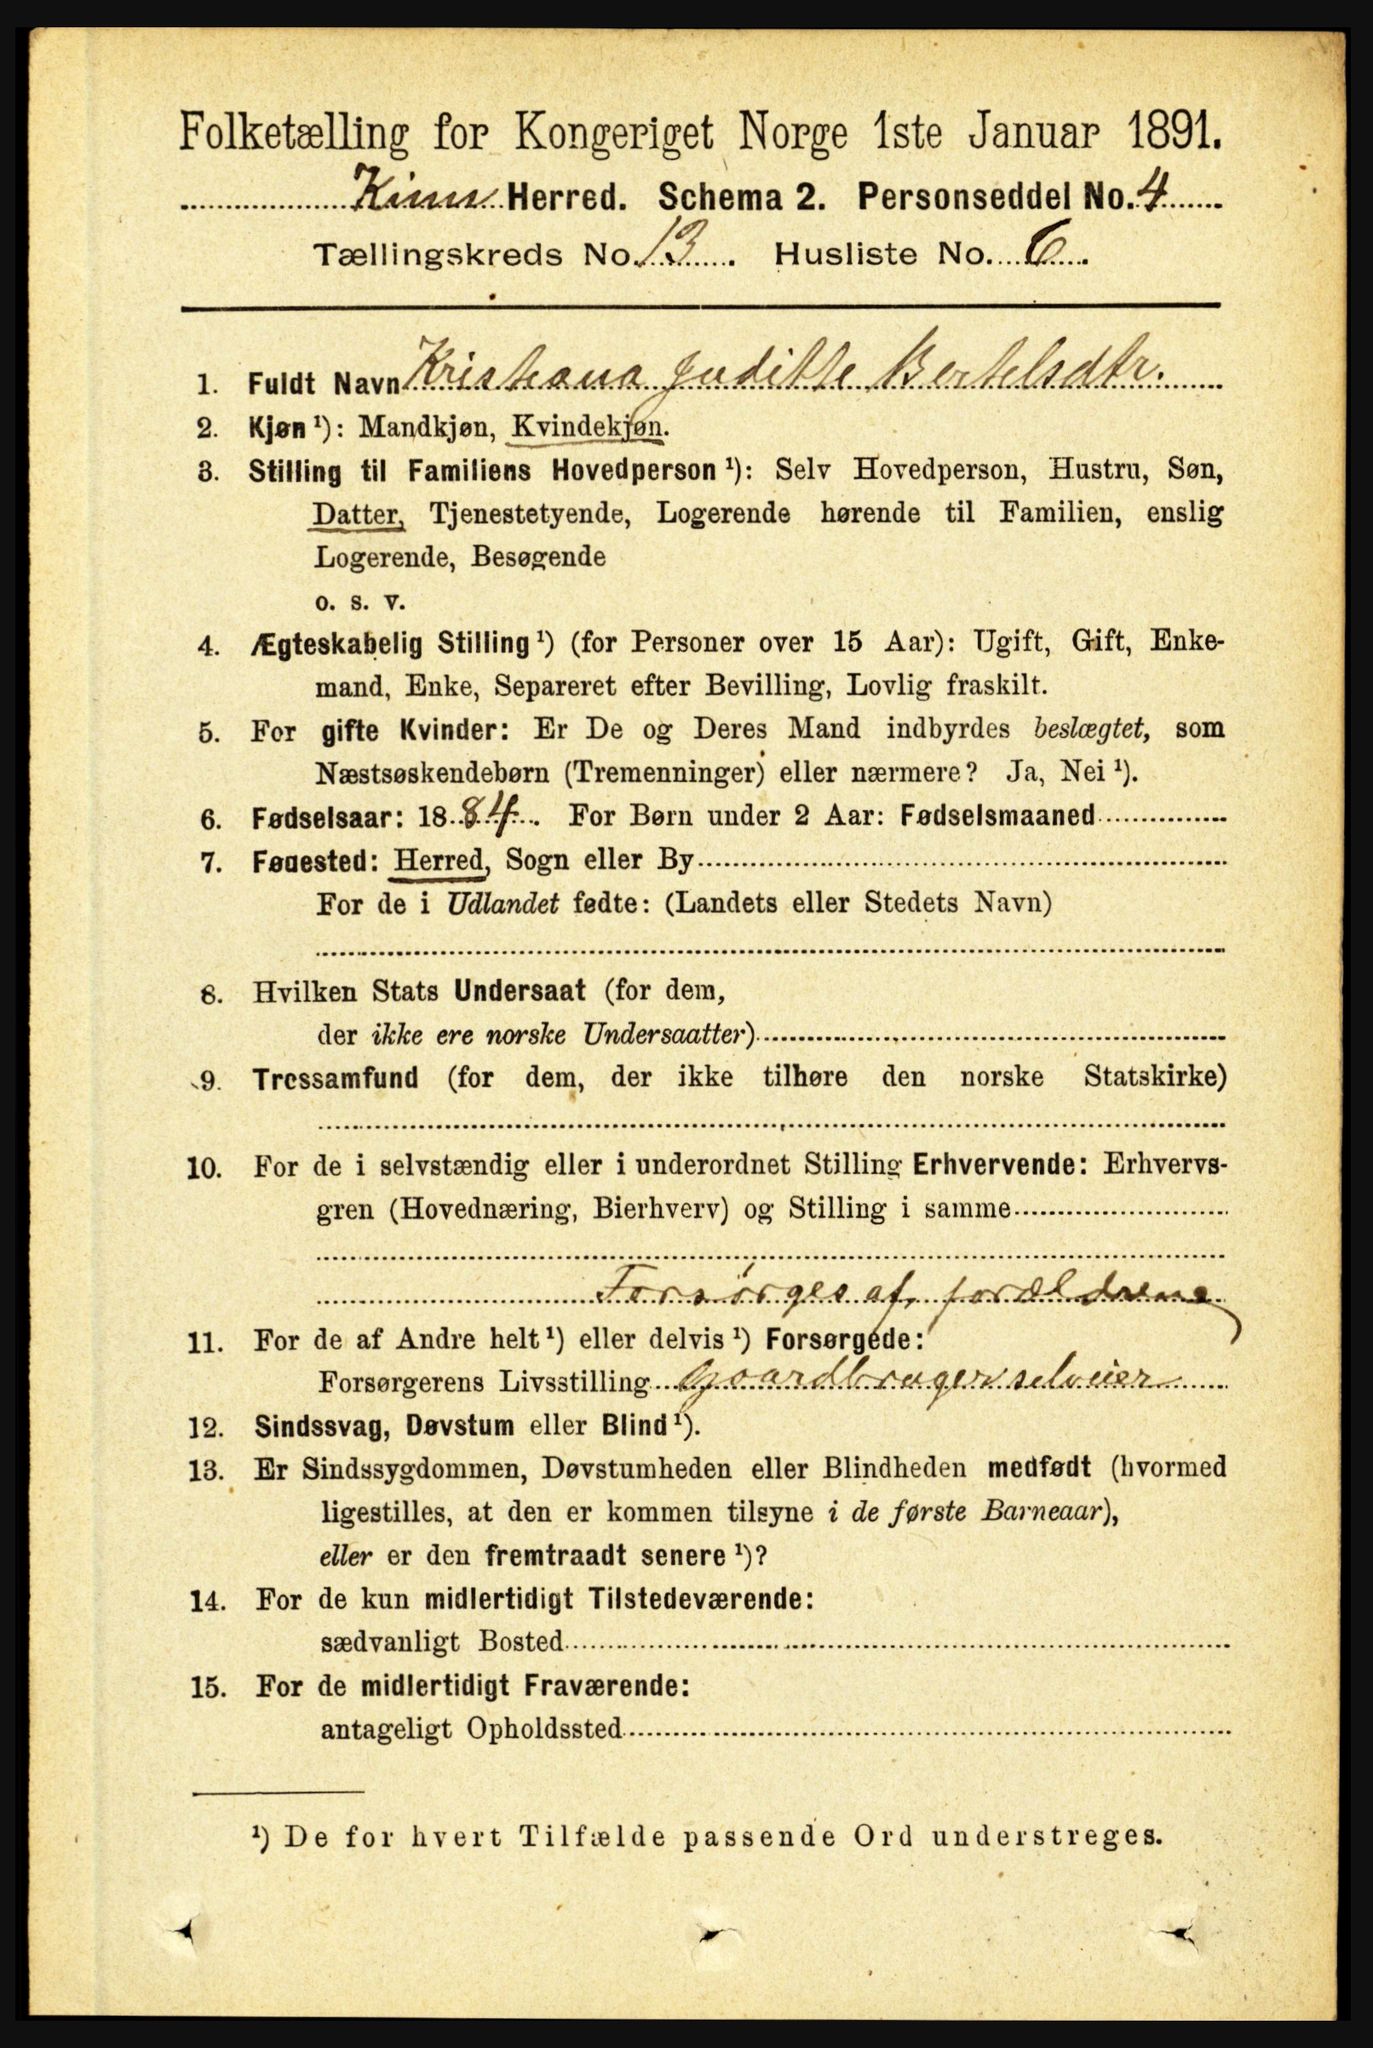 Folketælling for Kongeriget Norge 1ste Januar 1891.
Kinn Herred. Schema 2. Personseddel No. 4
Tællingskreds No. 13. Husliste No. 6.
1. Fuldt Navn Kristiana Juditte Bertelsdtr.
2. Kjøn ¹): Mandkjøn, Kvindekjøn.
3. Stilling til Familiens Hovedperson ¹): Selv Hovedperson, Hustru, Søn,
Datter, Tjenestetyende, Logerende hørende til Familien, enslig
Logerende, Besøgende
o. s. v.
4. Ægteskabelig Stilling ¹) (for Personer over 15 Aar): Ugift, Gift, Enke-
mand, Enke, Separeret efter Bevilling, Lovlig fraskilt.
5. For gifte Kvinder: Er De og Deres Mand indbyrdes beslægtet, som
Næstsøskendebørn (Tremenninger) eller nærmere? Ja, Nei ¹).
6. Fødselsaar: 1884. For Børn under 2 Aar: Fødselsmaaned
7. Fødested: Herred, Sogn eller By
For de i Udlandet fødte: (Landets eller Stedets Navn)
8. Hvilken Stats Undersaat (for dem,
der ikke ere norske Undersaatter)
9. Trossamfund (for dem, der ikke tilhøre den norske Statskirke)
10. For de i selvstændig eller i underordnet Stilling Erhvervende: Erhvervs-
gren (Hovednæring, Bierhverv) og Stilling i samme
Forsørges af forældrene
11. For de af Andre helt ¹) eller delvis ¹) Forsørgede:
Forsørgerens Livsstilling Gaardbruger selveier
12. Sindssvag, Døvstum eller Blind ¹).
13. Er Sindssygdommen, Døvstumheden eller Blindheden medfødt (hvormed
ligestilles, at den er kommen tilsyne i de første Barneaar),
eller er den fremtraadt senere ¹)?
14. For de kun midlertidigt Tilstedeværende:
sædvanligt Bosted
15. For de midlertidigt Fraværende:
antageligt Opholdssted
¹) De for hvert Tilfælde passende Ord understreges.